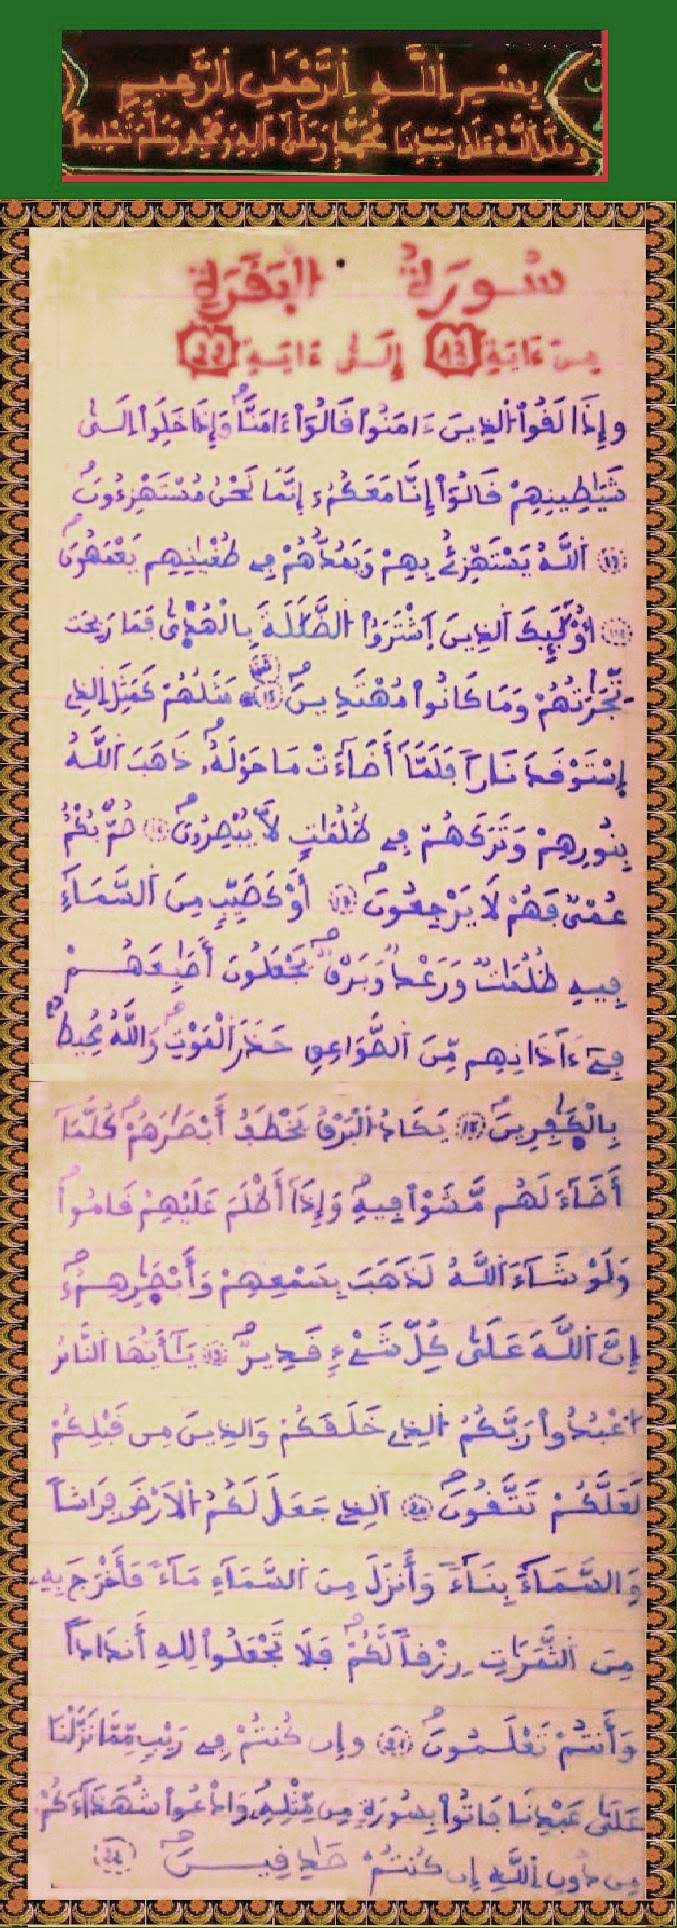 بِسْمِ اللَّهِ الرَّحْمَٰنِ الرَّحِيمِ
وَصَلَّى اللَّهُ عَلَىٰ سَيِّدِنَا مُحَمَّدٍ وَعَلَىٰ ءَالِهِ وَصَحْبِهِ وَسَلَّمَ تَسْلِيماً
سُورَةُ الْبَقَرَةِ
مِنْ ءَايَةِ 13 إِلَىٰ ءَايَةِ 22
وَإِذَا لَقُواْ الذِينَ ءَامَنُواْ قَالُوٓاْ ءَامَنَّا وَإِذَا خَلَوِاْ اِلَىٰ
شَيَٰطِينِهِمْ قَالُوٓاْ إِنَّا مَعَكُمُۥٓ إِنَّمَا نَحْنُ مُسْتَهْزِءُونَ
13 اَللَّهُ يَسْتَهْزِئُ بِهِمْ وَيَمُدُّهُمْ فِي طُغْيَٰنِهِمْ يَعْمَهُونَ
14 أُوْلَٰٓئِكَ الذِينَ اَشْتَرَوُاْ الضَّلَٰلَةَ بِالْهُدَىٰ فَمَا رَبِحَت
تِّجَٰرَتُهُمْ وَمَا كَانُواْ مُهْتَدِينَ 15 مَثَلُهُمْ كَمَثَلِ الذِي
اِسْتَوْقَدَ نَاراً فَلَمَّآ أَضَآءَتْ مَا حَوْلَهُۥ ذَهَبَ اللَّهُ
بِنُورِهِمْ وَتَرَكَهُمْ فِي ظُلُمَٰتٍ لَّا يُبْصِرُونَ 16 صُمٌّ بُكْمٌ
عُمْيٌ فَهُمْ لَا يَرْجِعُونَ 17 أَوْ كَصَيِّبٍ مِّنَ السَّمَآءِ
فِيهِ ظُلُمَٰتٌ وَرَعْدٌ وَبَرْقٌ يَجْعَلُونَ أَصَٰبِعَهُمْ
فِيٓ ءَاذَانِهِم مِّنَ الصَّوَٰعِقِ حَذَرَ الْمَوْتِ وَاللَّهُ مُحِيطٌ
بِالْكَٰفِرِينَ 18 يَكَادُ الْبَرْقُ يَخْطَفُ أَبْصَٰرَهُمْ كُلَّمَآ
أَضَآءَ لَهُم مَّشَوْاْ فِيهِ وَإِذَآ أَظْلَمَ عَلَيْهِمْ قَامُواْ
وَلَوْ شَآءَ اَللَّهُ لَذَهَبَ بِسَمْعِهِمْ وَأَبْصَٰرِهِمُۥٓ
إِنَّ اَللَّهَ عَلَىٰ كُلِّ شَيْءٍ قَدِيرٌ 19 يَٰٓأَيُّهَا النَّاسُ
اُعْبُدُواْ رَبَّكُمُ الذِي خَلَقَكُمْ وَالذِينَ مِن قَبْلِكُمْ
لَعَلَّكُمْ تَتَّقُونَ 20 اَلذِي جَعَلَ لَكُمُ الْأَرْضَ فِرَاشاً
وَالسَّمَآءَ بِنَآءً وَأَنزَلَ مِنَ السَّمَآءِ مَآءً فَأَخْرَجَ بِهِۦ
مِنَ الثَّمَرَٰتِ رِزْقاً لَّكُمْ فَلَا تَجْعَلُواْ لِلهِ أَندَاداً
وَأَنتُمْ تَعْلَمُونَ 21 وَإِن كُنتُمْ فِي رَيْبٍ مِّمَّا نَزَّلْنَا
عَلَىٰ عَبْدِنَا فَاتُواْ بِسُورَةٍ مِّن مِّثْلِهِۦ وَادْعُواْ شُهَدَآءَكُم
مِّن دُونِ اللَّهِ إِن كُنتُمْ صَٰدِقِينَ 22